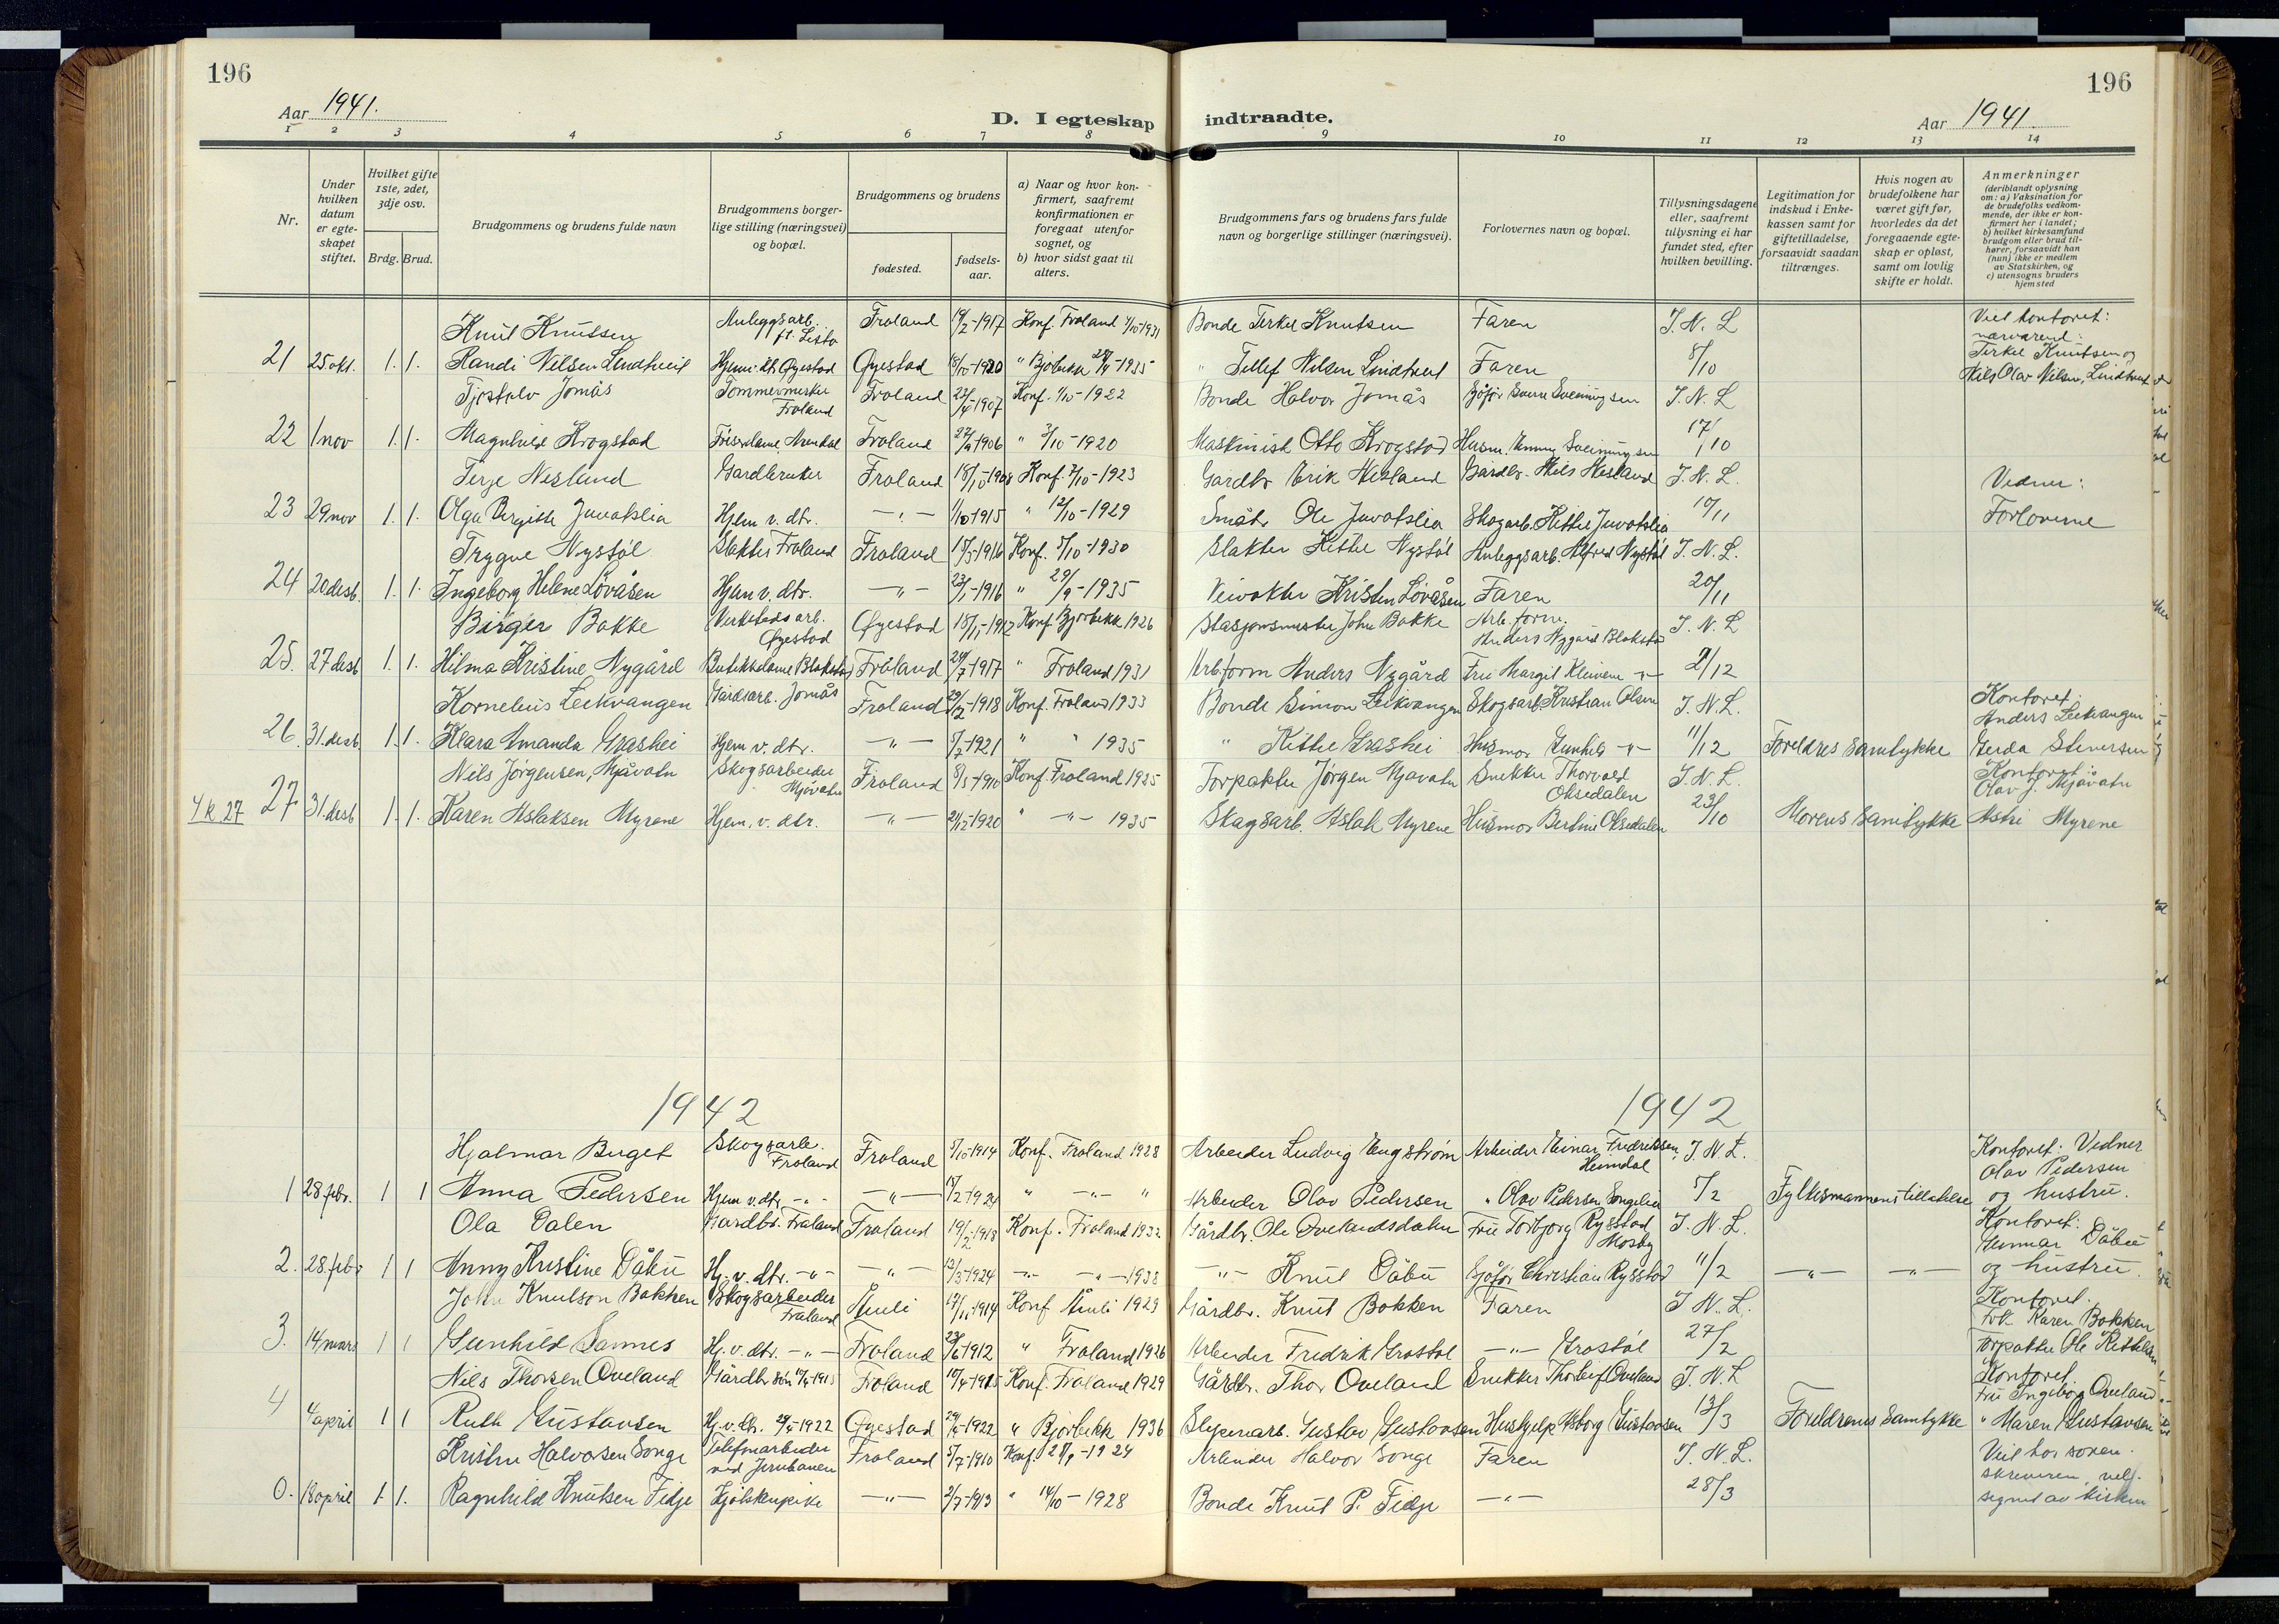 196
196
Aar 1941.
D. I egteskap indtraadte.
Aar 1941.
1 2 3 4 5 6 7 8 9 10 11 12 13 14
Nr.
Under hvilken datum er egteskapet stiftet.
Hvilket gifte 1ste, 2det, 3dje osv.
Brdg. Brud.
Brudgommens og brudens fulde navn
Brudgommens borgerlige stilling (næringsvei) og bopæl.
Brudgommens og brudens
fødested.
fødselsaar.
a) Naar og hvor konfirmert, saafremt konfirmationen er foregaat utenfor sognet, og
b) hvor sidst gaat til alters.
Brudgommens fars og brudens fars fulde navn og borgerlige stillinger (næringsvei).
Forlovernes navn og bopæl.
Tillysningsdagene eller, saafremt tillysning ei har fundet sted, efter hvilken bevilling.
Legitimation for indskud i Enkekassen samt for giftetilladelse, forsaavidt saadan tiltrænges.
Hvis nogen av brudefolkene har været gift før, hvorledes da det foregaaende egteskap er opløst, samt om lovlig skifte er holdt.
Anmerkninger
(deriblandt oplysning om: a) Vaksination for de brudefolks vedkommende, der ikke er konfirmert her i landet; b) hvilket kirkesamfund brudgom eller brud tilhører, forsaavidt han (hun) ikke er medlem av Statskirken, og c) utensogns bruders hjemsted
Knut Knutsen Anleggsarb. pt. Lista Froland 1917 Konf. Froland 1931 Bonde Terkel Knutsen Faren T. N. L Viet kontoret: nærværend: Terkel Knutsen og
21 25.okt. 1. 1. Randi Nilsen Lindtveit Øyestad Øyestad 1920 " Bjorbekk 1935 " Tellef Nilsen Lindtveit Faren 8/10 Nils Olav Nilsen, Lindtveit
Tjostolv Jomås Tømmermerker Froland Froland 1907 Konf. 1/10-1922 Bonde Halvor Jomås Sjåfør Sveinungsen T. N. L
22 1 nov 1. 1. Magnhild Krogstad Frisørdame, Arendal Froland 1906 " 3/10-1920 Maskinist Otto Krogstad Husm. Sveinungsen 17/10
Terje Nesland Gardbruker Froland 1908 Konf. 7/10-1923 Gardbr Erik Nesland Gårdbr. Nils Nesland T. N. L. Vidner:
23 29 nov 1. 1. Olga Birgitte Juvatslia Hjem v. dtr. — " — 1/10 1915 " 12/10-1929 Småbr Ole Juvatslia Skogarb. Kittel Juvatslia 10/11 Forloverne
Trygve Nystøl Slakter Froland Froland 1916 Konf. 5/10-1930 Slakter Kittel Nystøl Anleggsarb. Alfred Nystøl T. N. L.
24 20 desb. 1. 1. Ingeborg Helene Lövåsen Hjem v. dtr. — " — 23/1-1916 " 29/9-1935 Veivokter Kristen Lövåsen Faren 20/11
Birger Bakke Verkstedsarb. Øyestad Øyestad Konf. Bjorbekk 1926 Stasjonsmester John Bakke Arb. form. Anders Nygård Blakstad T. N. L
25. 27 desb 1. 1. Hilma Kristine Nygård Butikkdame Blakstad Froland 1917 " Froland 1931 Arb. form Anders Nygård Fru Margit Kleivene — " — 2/12
Kornelius Leikvangen Gårdsarb. Jomås Froland 1918 Konf. Froland 1933 Bonde Simon Leikvangen Skogsarb. Kristian Olsen T. N. L. Kontoret: Anders Leikvangen
26. 31. desb. 1. 1. Klara Amanda Grashei Hjem v. dtr. — " — 5/2 1921 " " 1935 " Kittel Grashei Husmor Gunhild — " — 11/12 Foreldres samtykke Gerda Stiversen
Nils Jörgensen, Mjåvatn Skogsarbeider Mjåvatn Froland 1910 Konf. Froland 1925 Forpakter Jørgen Mjåvatn Snekker Thorvald Oksedalen T. N. L. Kontoret: Olav J. Mjåvatn
27 31. desb 1. 1. Karen Aslaksen Myrene Hjem. v. dtr. — " — 1920 " — " — 1935 Skogsarb. Aslak Myrene Husmor Bertine Oksedalen 23/10 Morens samtykke Astri Myrene
1942 1942
Hjalmar Buget Skogsarb. Froland Froland 1914 Konf. Froland 1928 Arbeider Ludvig Engström Arbeider Einar Fredriksen, Heimdal T. N. L. Kontoret: Vidner Olav Pedersen
1 28 febr. 1 1 Anna Pedersen Hjem v. dtr — " — — " — 1924 " — " — " Arbeider Olav Pedersen " Olav Pedersen Songelien 5/2 Fylkesmannens tillatelse og hustru.
Ola Dalen Gardbr. Froland Froland 19/2-1913 Konf. Froland 1932 Gårdbr. Ole Ovelandsdalen Fru Torbjørg Rysstad Mosby T. N. L. Kontoret: Gunnar Dåbu
2. 28. febr 1 1 Anny Kristine Dåbu Hj. v. dtr. — " — — " — 1924 — " — — " — 1938 — " — Knut Dåbu Sjåfør Christian Rysstad 11/2 — " — — " — og hustru.
John Knutson Bakken Skogsarbeider Froland Åmli 1914 Konf Åmli 1929 Gårdbr. Knut Bakken Faren T. N. L. Kontoret. Frk. Karen Bakken
3. 14 mars 1 1 Gunhild Sannes Hj. v. dtr. — " — Froland 23/6 1912 " Froland 1926 Arbeider Fredrik Grostøl — " — Grostøl 27/2 Forpakter Ole Kittelsen
Nils Thorsen Oveland Gårdbr sön Froland 1915 Konf. Froland 1929 Gårdbr. Thor Oveland Snekker Thorleif Oveland T. N. L Kontoret. Fru Ingeborg Oveland
4 4 april 1 1 Ruth Gustavsen Hj. v. dtr. 1922 Øyestad 1922 " Bjorbekk 1936 Sliperiarb. Gustav Gustavsen Hushjelp Gustavsen 13/3 Foreldrenes samtykke " Maren Gustavsen
Kristen Halvorsen Songe Telefonarbeider ved Jernbanen Froland 5/7-1910 Konf. 1924 Arbeider Halvor Songe Faren T. N. L. Viet hos soren-
18 april 1. 1. Ragnhild Knutsen Fidje — " — 2/7-1913 " 14/10-1928 Bonde Knut P. Fidje — " — 28/3 skriveren, velsignet av kirken